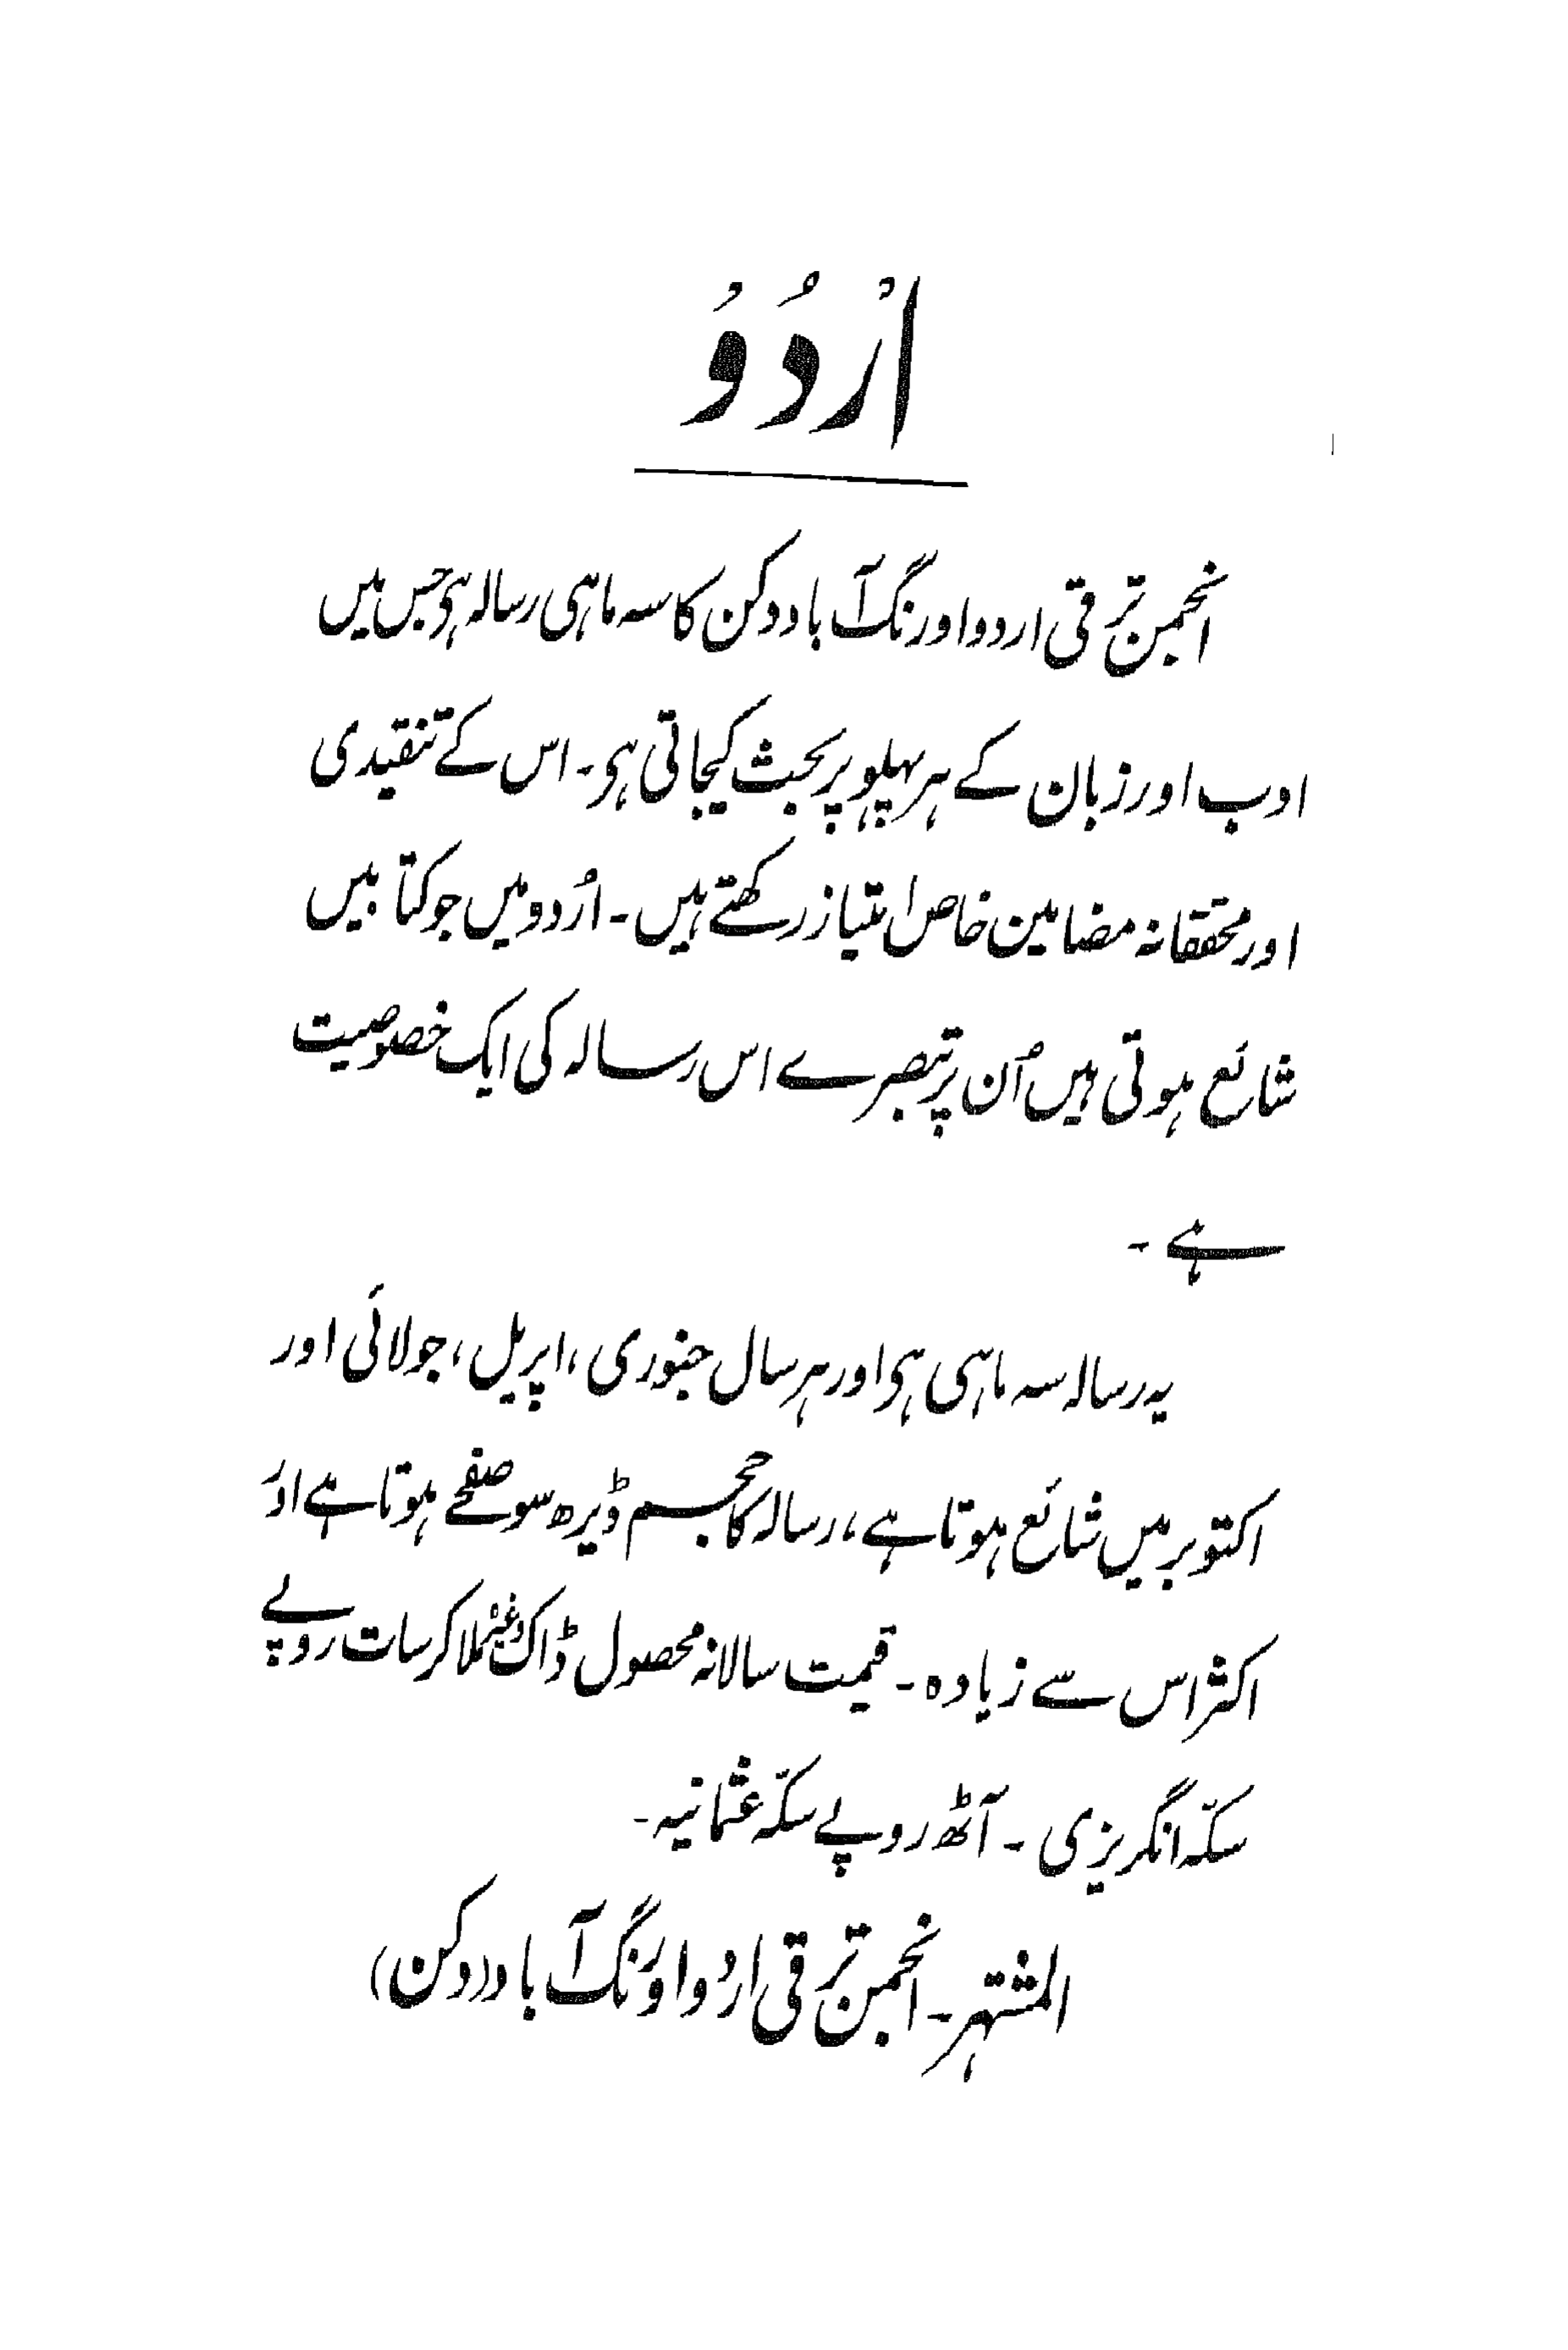 اُردُوُ
انجمن ترقی اردو اورنگ آباد دکن کا سہ ماہی رسالہ ہی جس میں
ادب اور زبان کے ہر پہلو پر بحث کیجاتی ہی۔ اس کے تنقیدی
اور محققانہ مضامین خاص امتیاز رکھتے ہیں۔ اُردو میں جو کتابیں
شائع ہوتی ہیں اُن پر تبصرے اس رسالہ کی ایک خصوصیت
ہے۔
یہ رسالہ سہ ماہی ہی اور ہر سال جنوری، اپریل، جولائی اور
اکتوبر میں شائع ہوتا ہے، رسالہ کا حجم ڈیرھ سو صفحے ہوتا ہے اور
اکثر اس سے زیادہ۔ قیمت سالانہ محصول ڈاک وغیرہ ملا کر سات روپے
سکّہ انگریزی۔ آٹھ روپے سکّہ عثمانیہ۔
المشتہر۔ انجمن ترقی اردو اورنگ آباد (دکن)